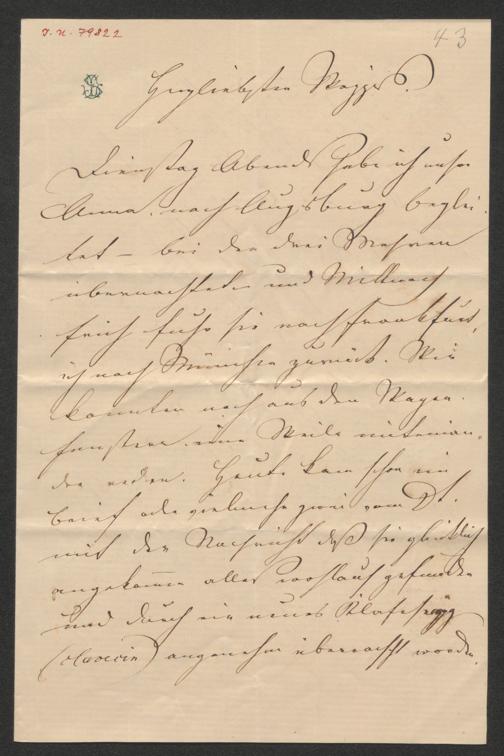 J. N. 79822
43
Herzliebster Mayjes!
Dienstag Abends habe ich unsre
Anna nach Augsburg beglei-
tet – bei den drei Mohren
übernachtet – und Mittwoch
früh fuhr sie nach Frankfurt,
ich nach München zurück. Wir
konnten noch aus den Wagen-
fenstern eine Weile miteinan-
der reden. Heute kam schon ein
Brief oder vielmehr zwei vom Dt.
mit der Nachricht daß sie glücklich
angekommen alles wohlauf gefunden
und durch ein neues
(clavecin) angenehm überrascht worden.